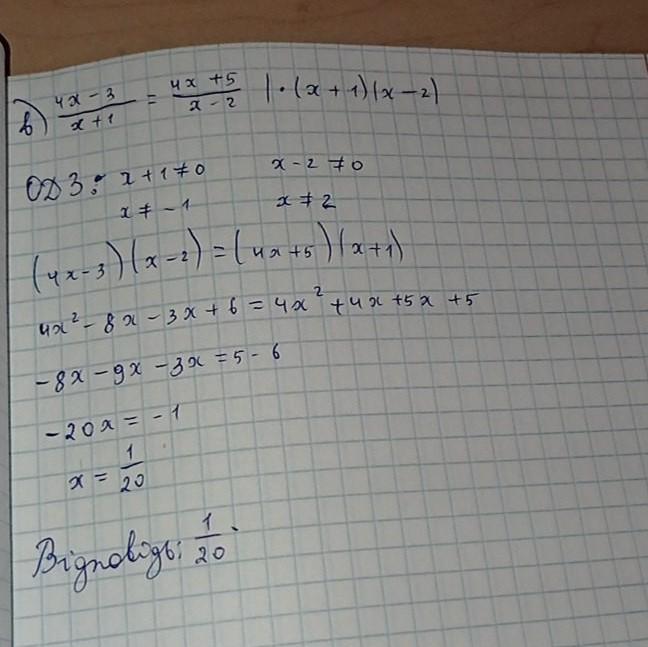 в) (4x - 3)/(x + 1) = (4x + 5)/(x - 2) | · (x + 1)(x - 2)
ОДЗ: x + 1 ≠ 0 x - 2 ≠ 0
x ≠ - 1 x ≠ 2
(4x - 3)(x - 2) = (4x + 5)(x + 1)
4x² - 8x - 3x + 6 = 4x² + 4x + 5x + 5
- 8x - 9x - 3x = 5 - 6
- 20x = - 1
x = 1/20
Відповідь: 1/20.